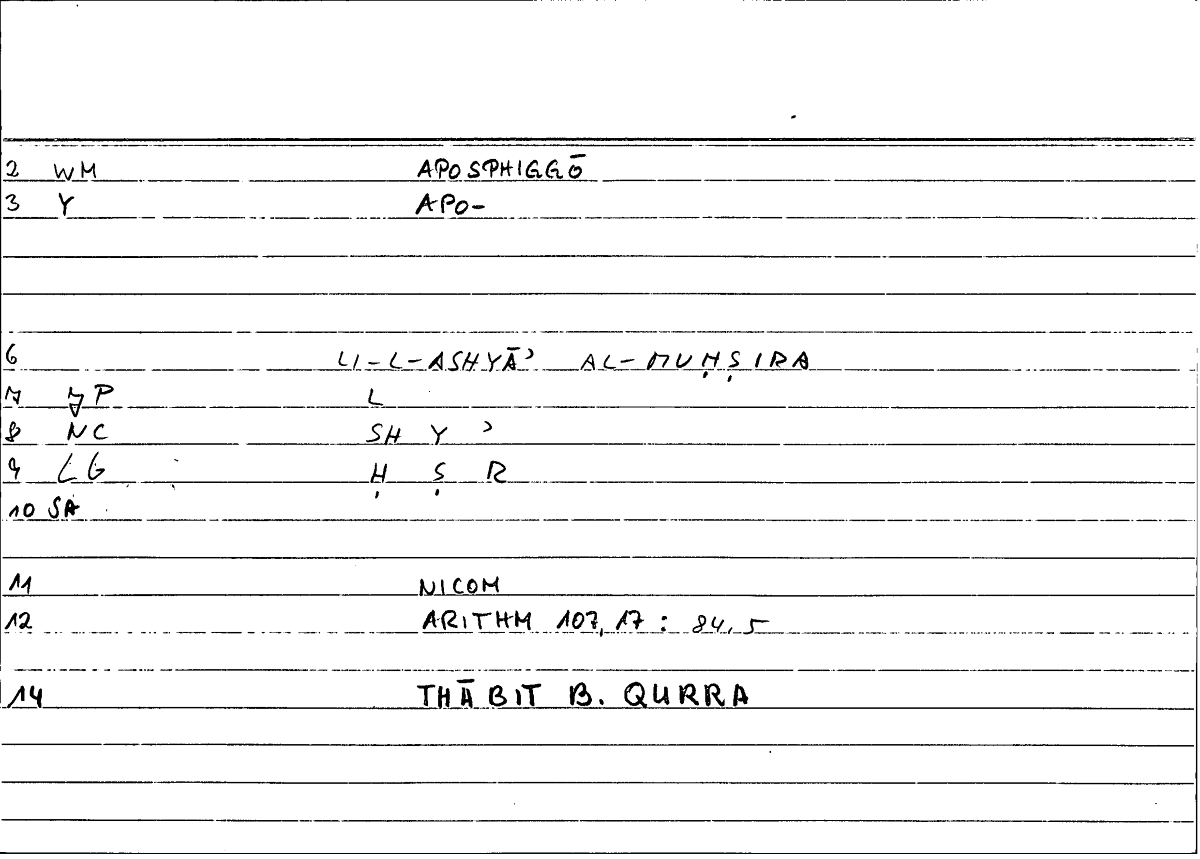 2 WM APOSPHIGGŌ
3 Y APO-
6 LI-L-ASHYĀʾ AL-MUḤṢIRA
7 P L
8 NC SH Y ʾ
9 LG Ḥ Ṣ R
10 SA
11 NICOM
12 ARITHM 107,17 : 84,5
14 THĀBIT B. QURRA